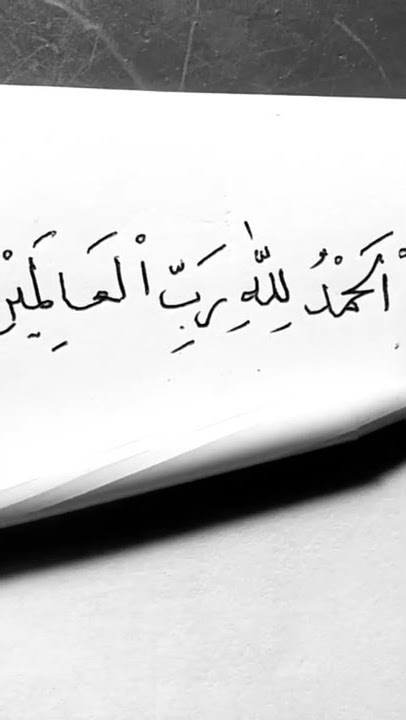 اَلْحَمْدُ لِلّٰهِ رَبِّ الْعَالَمِيْنَ